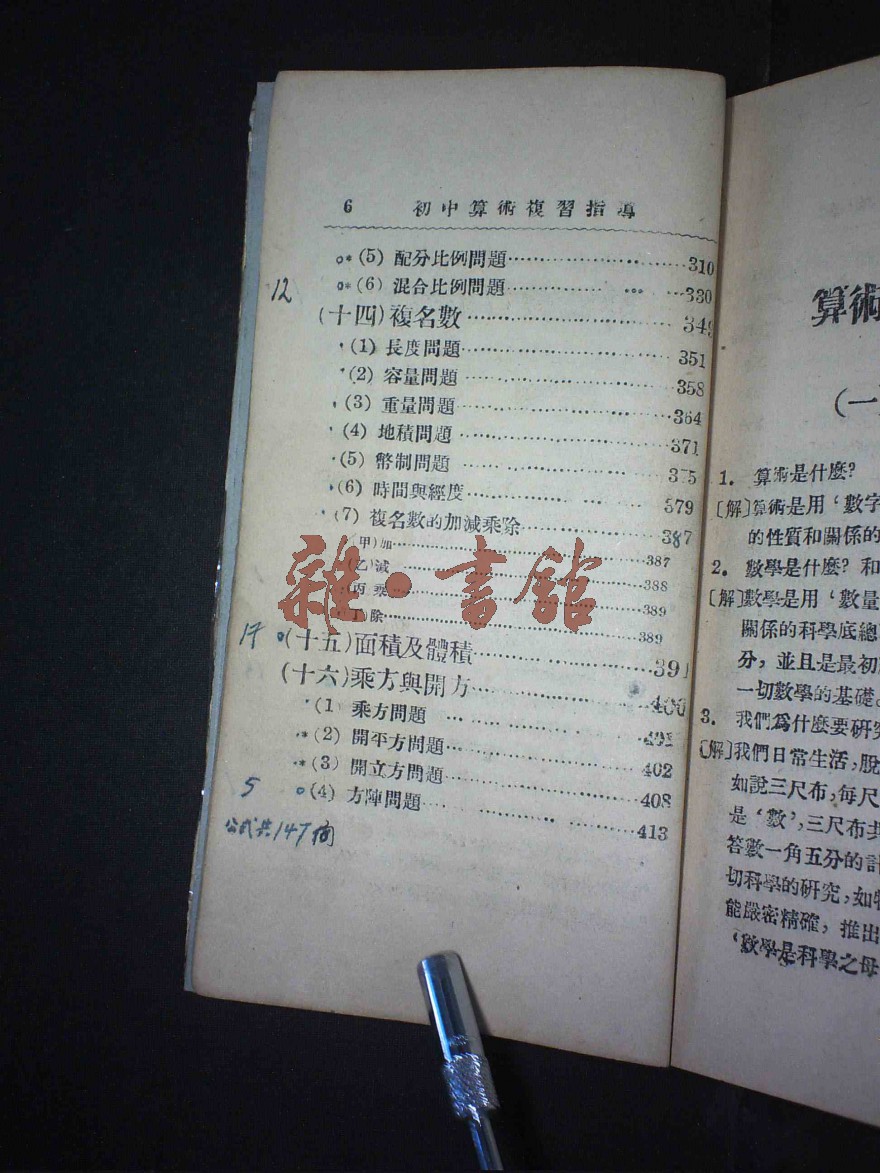 6 初中算術複習指導
(5) 配分比例問題 310
(6) 混合比例問題 330
12
(十四)複名數 349
(1) 長度問題 351
(2) 容量問題 358
(3) 重量問題 364
(4) 地積問題 371
(5) 幣制問題 375
(6) 時間與經度 379
(7) 複名數的加減乘除 387
(甲)加 387
(乙)減 388
(丙)乘 389
(丁)除 389
17 (十五)面積及體積 391
(十六)乘方與開方 400
(1) 乘方問題
*(2) 開平方問題 402
*(3) 開立方問題 408
5 (4) 方陣問題 413
公式共147個
雜·書館
算術
(一
1. 算術是什麼?
〔解〕算術是用‘數字
的性質和關係的
2. 數學是什麼? 和
〔解〕數學是用‘數量
關係的科學底總
分, 並且是最初
一切數學的基礎。
3. 我們爲什麼要研究
〔解〕我們日常生活,脫
如說三尺布,每尺
是‘數’,三尺布共
答數一角五分的計
切科學的研究,如物
能嚴密精確, 推出
‘數學是科學之母